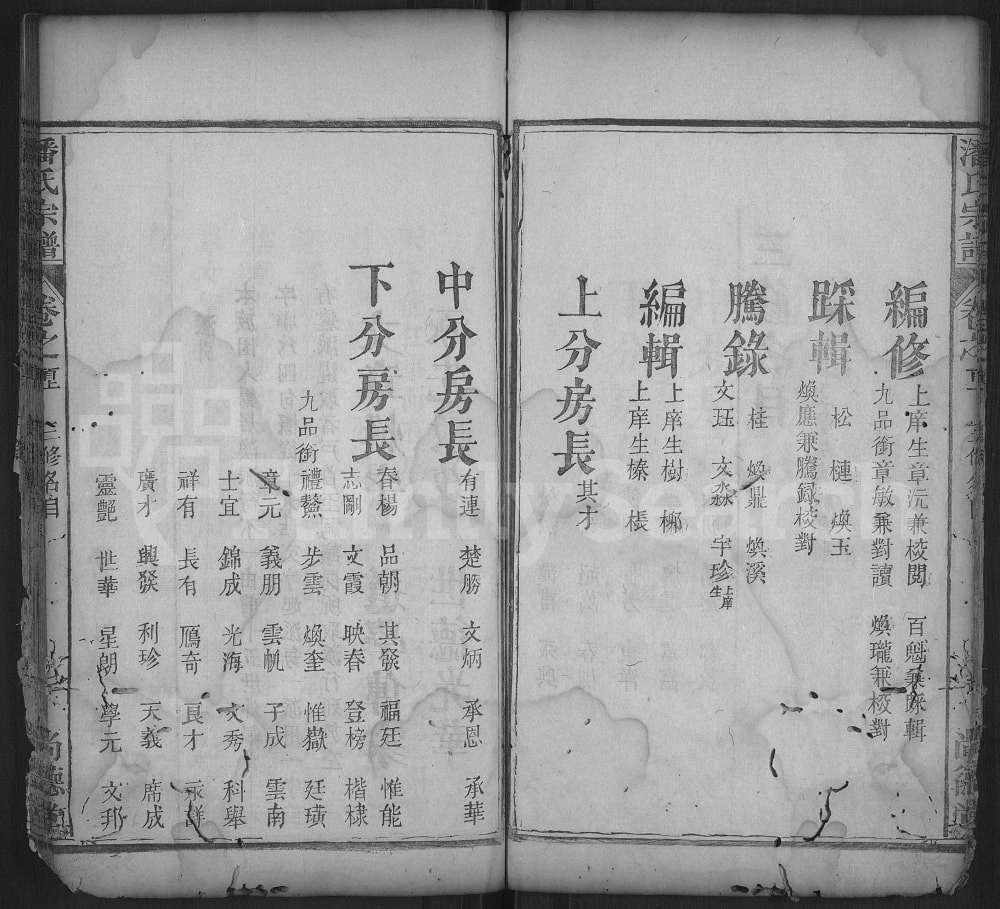 潘氏宗譜
編修
上庠生章沅兼校閱 百魁兼踩輯
九品銜章敏兼對讀 煥瓏兼校對
踩輯
松 槤 煥玉
煥應兼騰錄校對
騰錄
桂 煥鼎 煥溪
文珏 文淼 宇珍上庠生
編輯
上庠生樹 梛
上庠生榛 棖
上分房長
其才
中分房長
有連 楚勝 文炳 承恩 承華
下分房長
春楊 品朝 其發 福廷 惟能
志剛 文霞 映春 登榜 楷棣
九品銜禮鰲 步雲 煥奎 惟嶽 廷璜
章元 義朋 雲帆 子成 雲南
士宜 錦成 光海 文秀 科舉
祥有 長有 鴈奇 良才 永祥
廣才 興發 利珍 天義 席成
靈艷 世華 星朗 學元 文邦
潘氏宗譜 卷之 三修名目 尚德堂